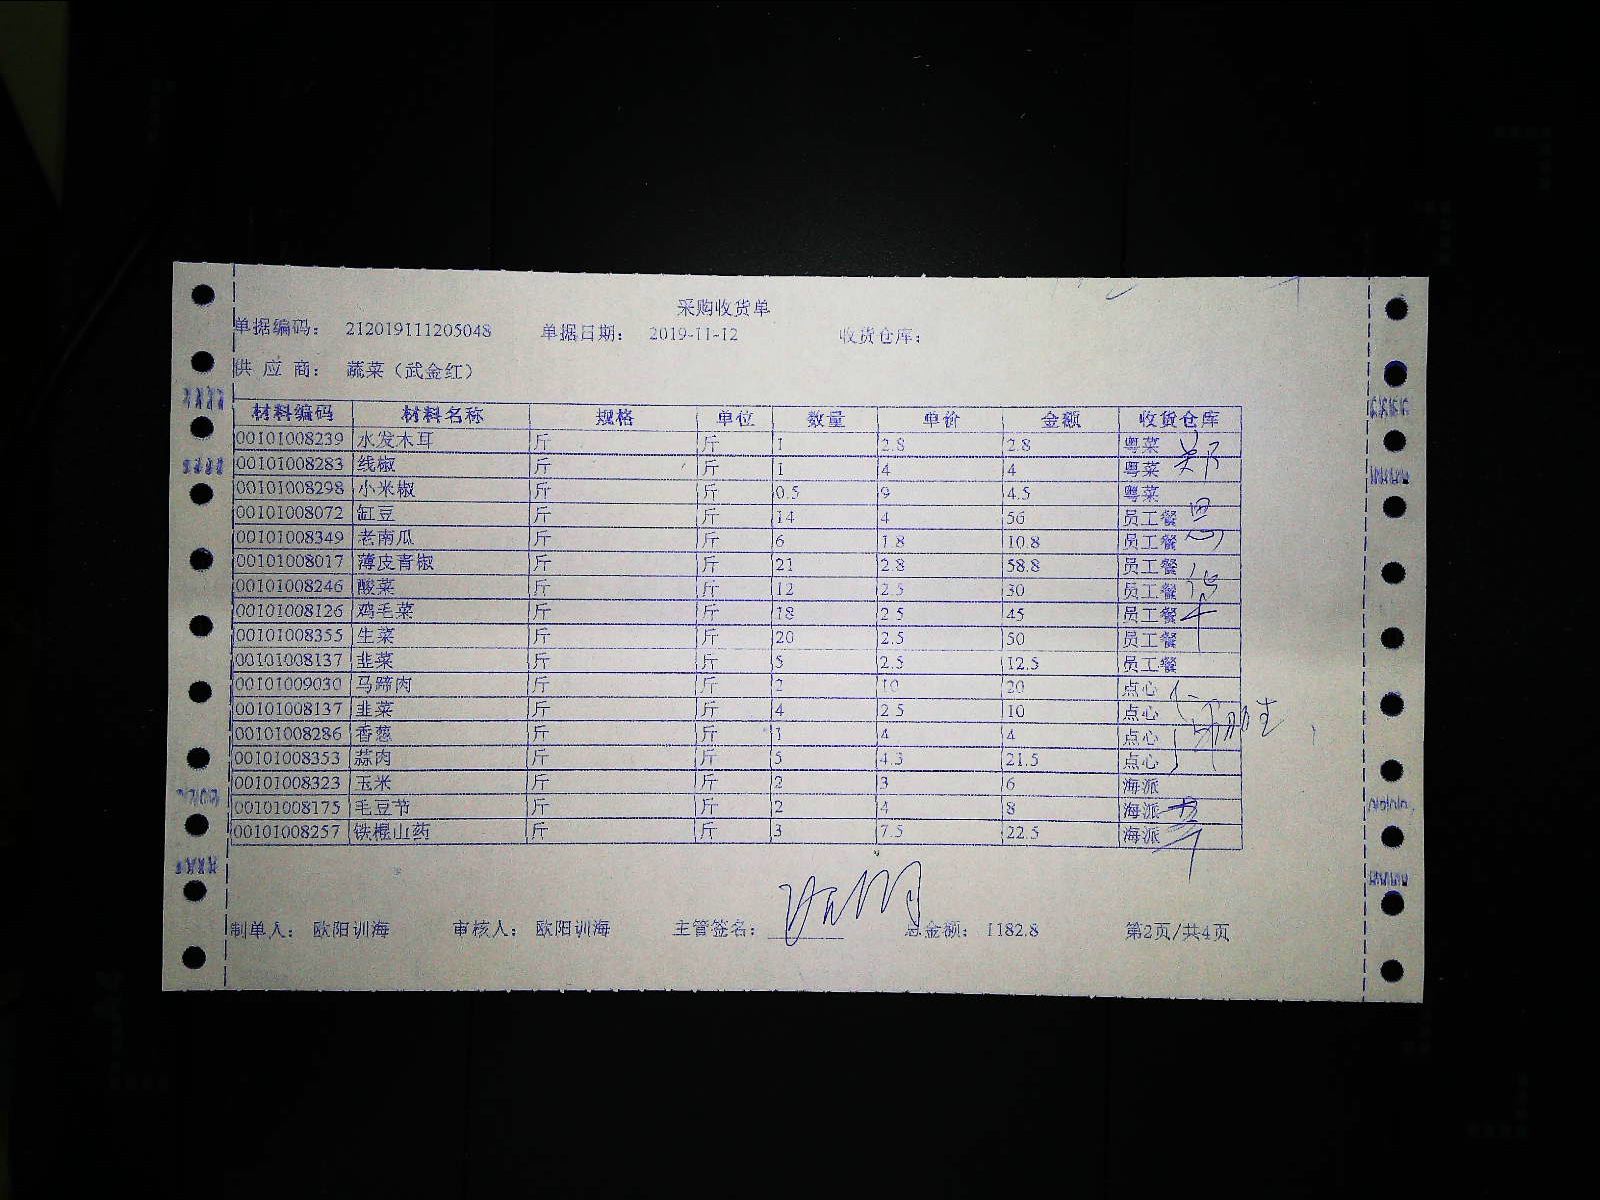 采购收货单
单据编码： 212019111205048 单据日期： 2019-11-12 收货仓库：
供 应 商： 蔬菜（武金红）
材料编码 材料名称 规格 单位 数量 单价 金额 收货仓库
00101008239 水发木耳 斤 斤 1 2.8 2.8 粤菜
00101008283 线椒 斤 斤 1 4 4 粤菜
00101008298 小米椒 斤 斤 0.5 9 4.5 粤菜
00101008072 缸豆 斤 斤 14 4 56 员工餐
00101008349 老南瓜 斤 斤 6 1.8 10.8 员工餐
00101008017 薄皮青椒 斤 斤 21 2.8 58.8 员工餐
00101008246 酸菜 斤 斤 12 2.5 30 员工餐
00101008126 鸡毛菜 斤 斤 18 2.5 45 员工餐
00101008355 生菜 斤 斤 20 2.5 50 员工餐
00101008137 韭菜 斤 斤 5 2.5 12.5 员工餐
00101009030 马蹄肉 斤 斤 2 10 20 点心
00101008137 韭菜 斤 斤 4 2.5 10 点心
00101008286 香葱 斤 斤 1 4 4 点心
00101008353 蒜肉 斤 斤 5 4.3 21.5 点心
00101008323 玉米 斤 斤 2 3 6 海派
00101008175 毛豆节 斤 斤 2 4 8 海派
00101008257 铁棍山药 斤 斤 3 7.5 22.5 海派
制单人： 欧阳训海 审核人： 欧阳训海 主管签名： 总金额： 1182.8 第2页/共4页